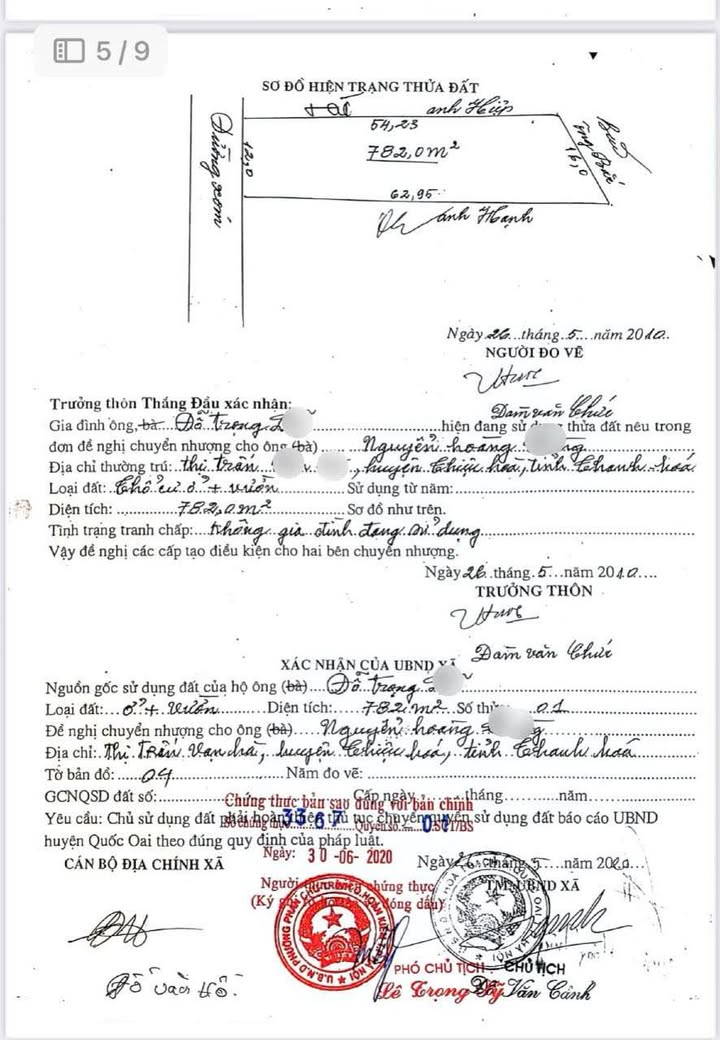 5/9
SƠ ĐỒ HIỆN TRẠNG THỬA ĐẤT
anh Hiệp
54,23
782,0m²
12,0
Đường xóm
16,0
ông Bắc
62,95
anh Hạnh
Ngày 26 tháng 5 năm 2010
NGƯỜI ĐO VẼ
Đàm văn Chức
Trưởng thôn Thắng Đầu xác nhận:
Gia đình ông, bà Đỗ trọng hiện đang sử thửa đất nêu trong
đơn đề nghị chuyển nhượng cho ông (bà) Nguyễn hoàng
Địa chỉ thường trú: thị trấn, huyện Thiệu hóa, tỉnh Thanh hoá
Loại đất: Thổ cư ở + vườn Sử dụng từ năm:
Diện tích: 782,0m² Sơ đồ như trên.
Tình trạng tranh chấp: không gia đình đang sử dụng
Vậy đề nghị các cấp tạo điều kiện cho hai bên chuyển nhượng.
Ngày 26 tháng 5 năm 2010
TRƯỞNG THÔN
Đàm văn Chức
XÁC NHẬN CỦA UBND XÃ
Nguồn gốc sử dụng đất của hộ ông (bà) Đỗ trọng
Loại đất: ở + vườn Diện tích: 782 m² Số thửa 01
Đề nghị chuyển nhượng cho ông (bà) Nguyễn hoàng
Địa chỉ: Thị Trấn Vạn hà, huyện Thiệu hoá, tỉnh Thanh hoá
Tờ bản đồ: 04 Năm đo vẽ:
GCNQSD đất số: Cấp ngày tháng năm
Chứng thực bản sao đúng với bản chính
Yêu cầu: Chủ sử dụng đất phải hoàn thủ tục chuyển quyền sử dụng đất báo cáo UBND
3367 Quyển số 01 SCT/BS
huyện Quốc Oai theo đúng quy định của pháp luật.
Ngày: 30-06-2020
CÁN BỘ ĐỊA CHÍNH XÃ
Ngày 26 tháng 5 năm 2010
Người chứng thực
TM. UBND XÃ
(Ký đóng dấu)
PHÓ CHỦ TỊCH
CHỦ TỊCH
Lê Trọng
Đỗ Văn Cảnh